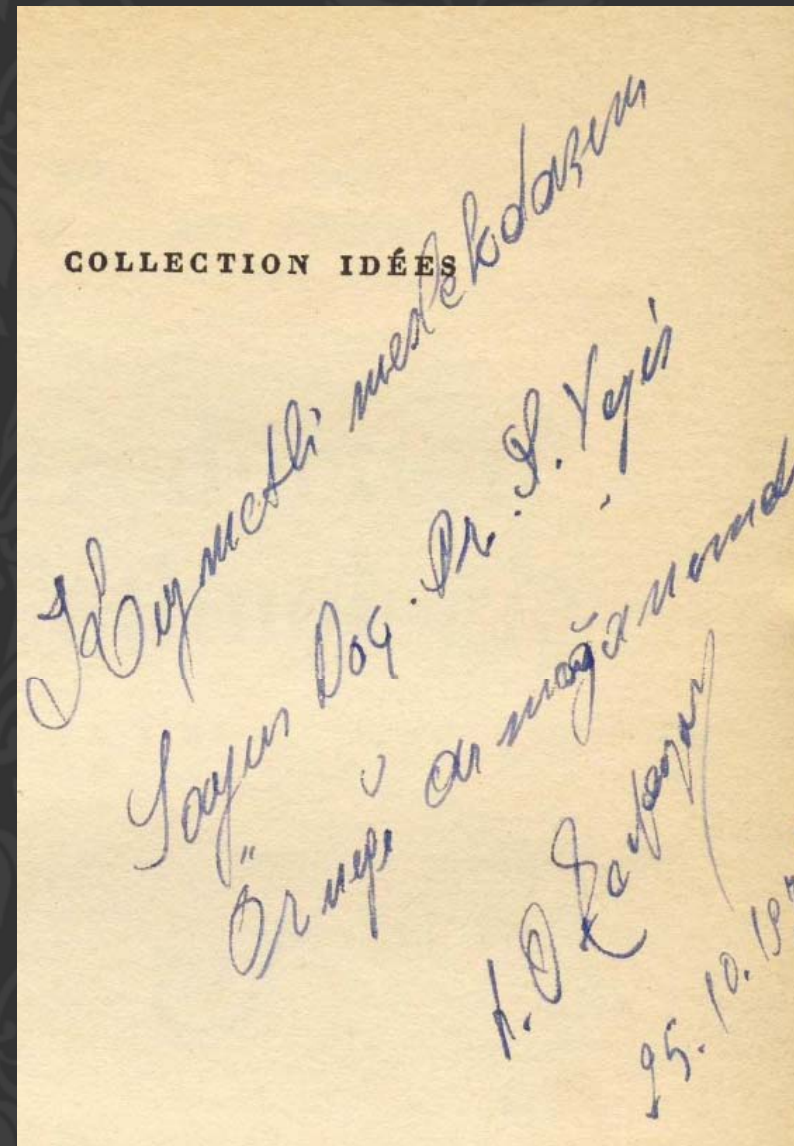 COLLECTION IDÉES
Kıymetli meslekdaşım
Sayın Doç. Dr. S. Veyis
Örneğe armağanımd
25.10.19